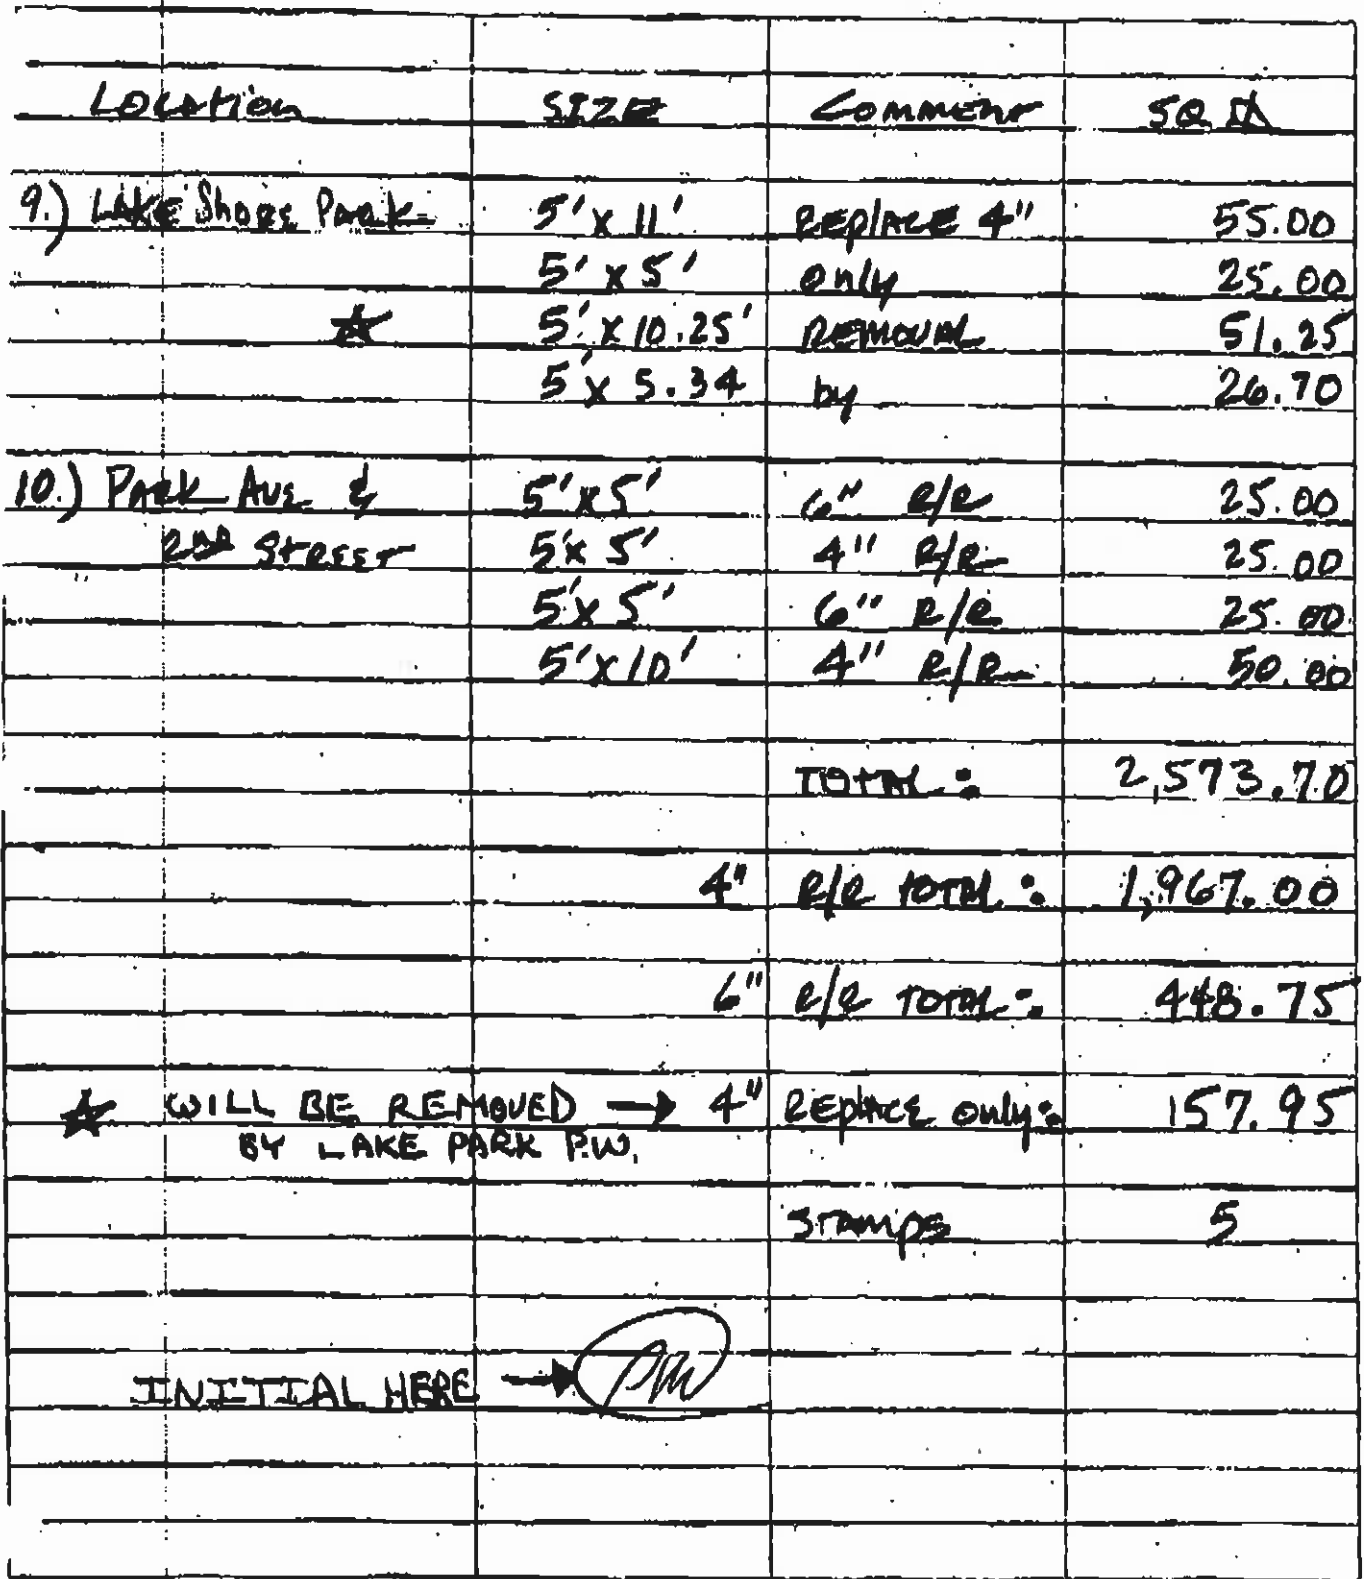 Location SIZE Comment SQ Ft
9.) Lake Shore Park 5' x 11' Replace 4" 55.00
5' x 5' only 25.00
☆ 5' x 10.25' Removal 51.25
5' x 5.34 by 26.70
10.) Park Ave & 5' x 5' 6" R/R 25.00
2nd Street 5' x 5' 4" R/R 25.00
5' x 5' 6" R/R 25.00
5' x 10' 4" R/R 50.00
TOTAL: 2,573.70
4" R/R TOTAL: 1,967.00
6" R/R TOTAL: 448.75
☆ WILL BE REMOVED → 4" Replace only: 157.95
BY LAKE PARK P.W.
STAMPS 5
INITIAL HERE →